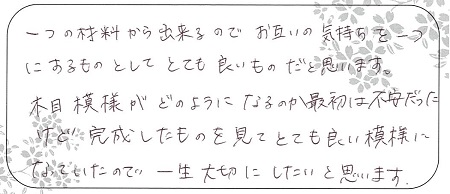 一つの材料から出来るので お互いの気持ちを一つ
にするものとして とても 良いものだと思います。
木目模様が どのように なるのか最初は不安だった
けど 完成したものを見てとても良い模様に
なっていたので 一生大切に したいと思います。